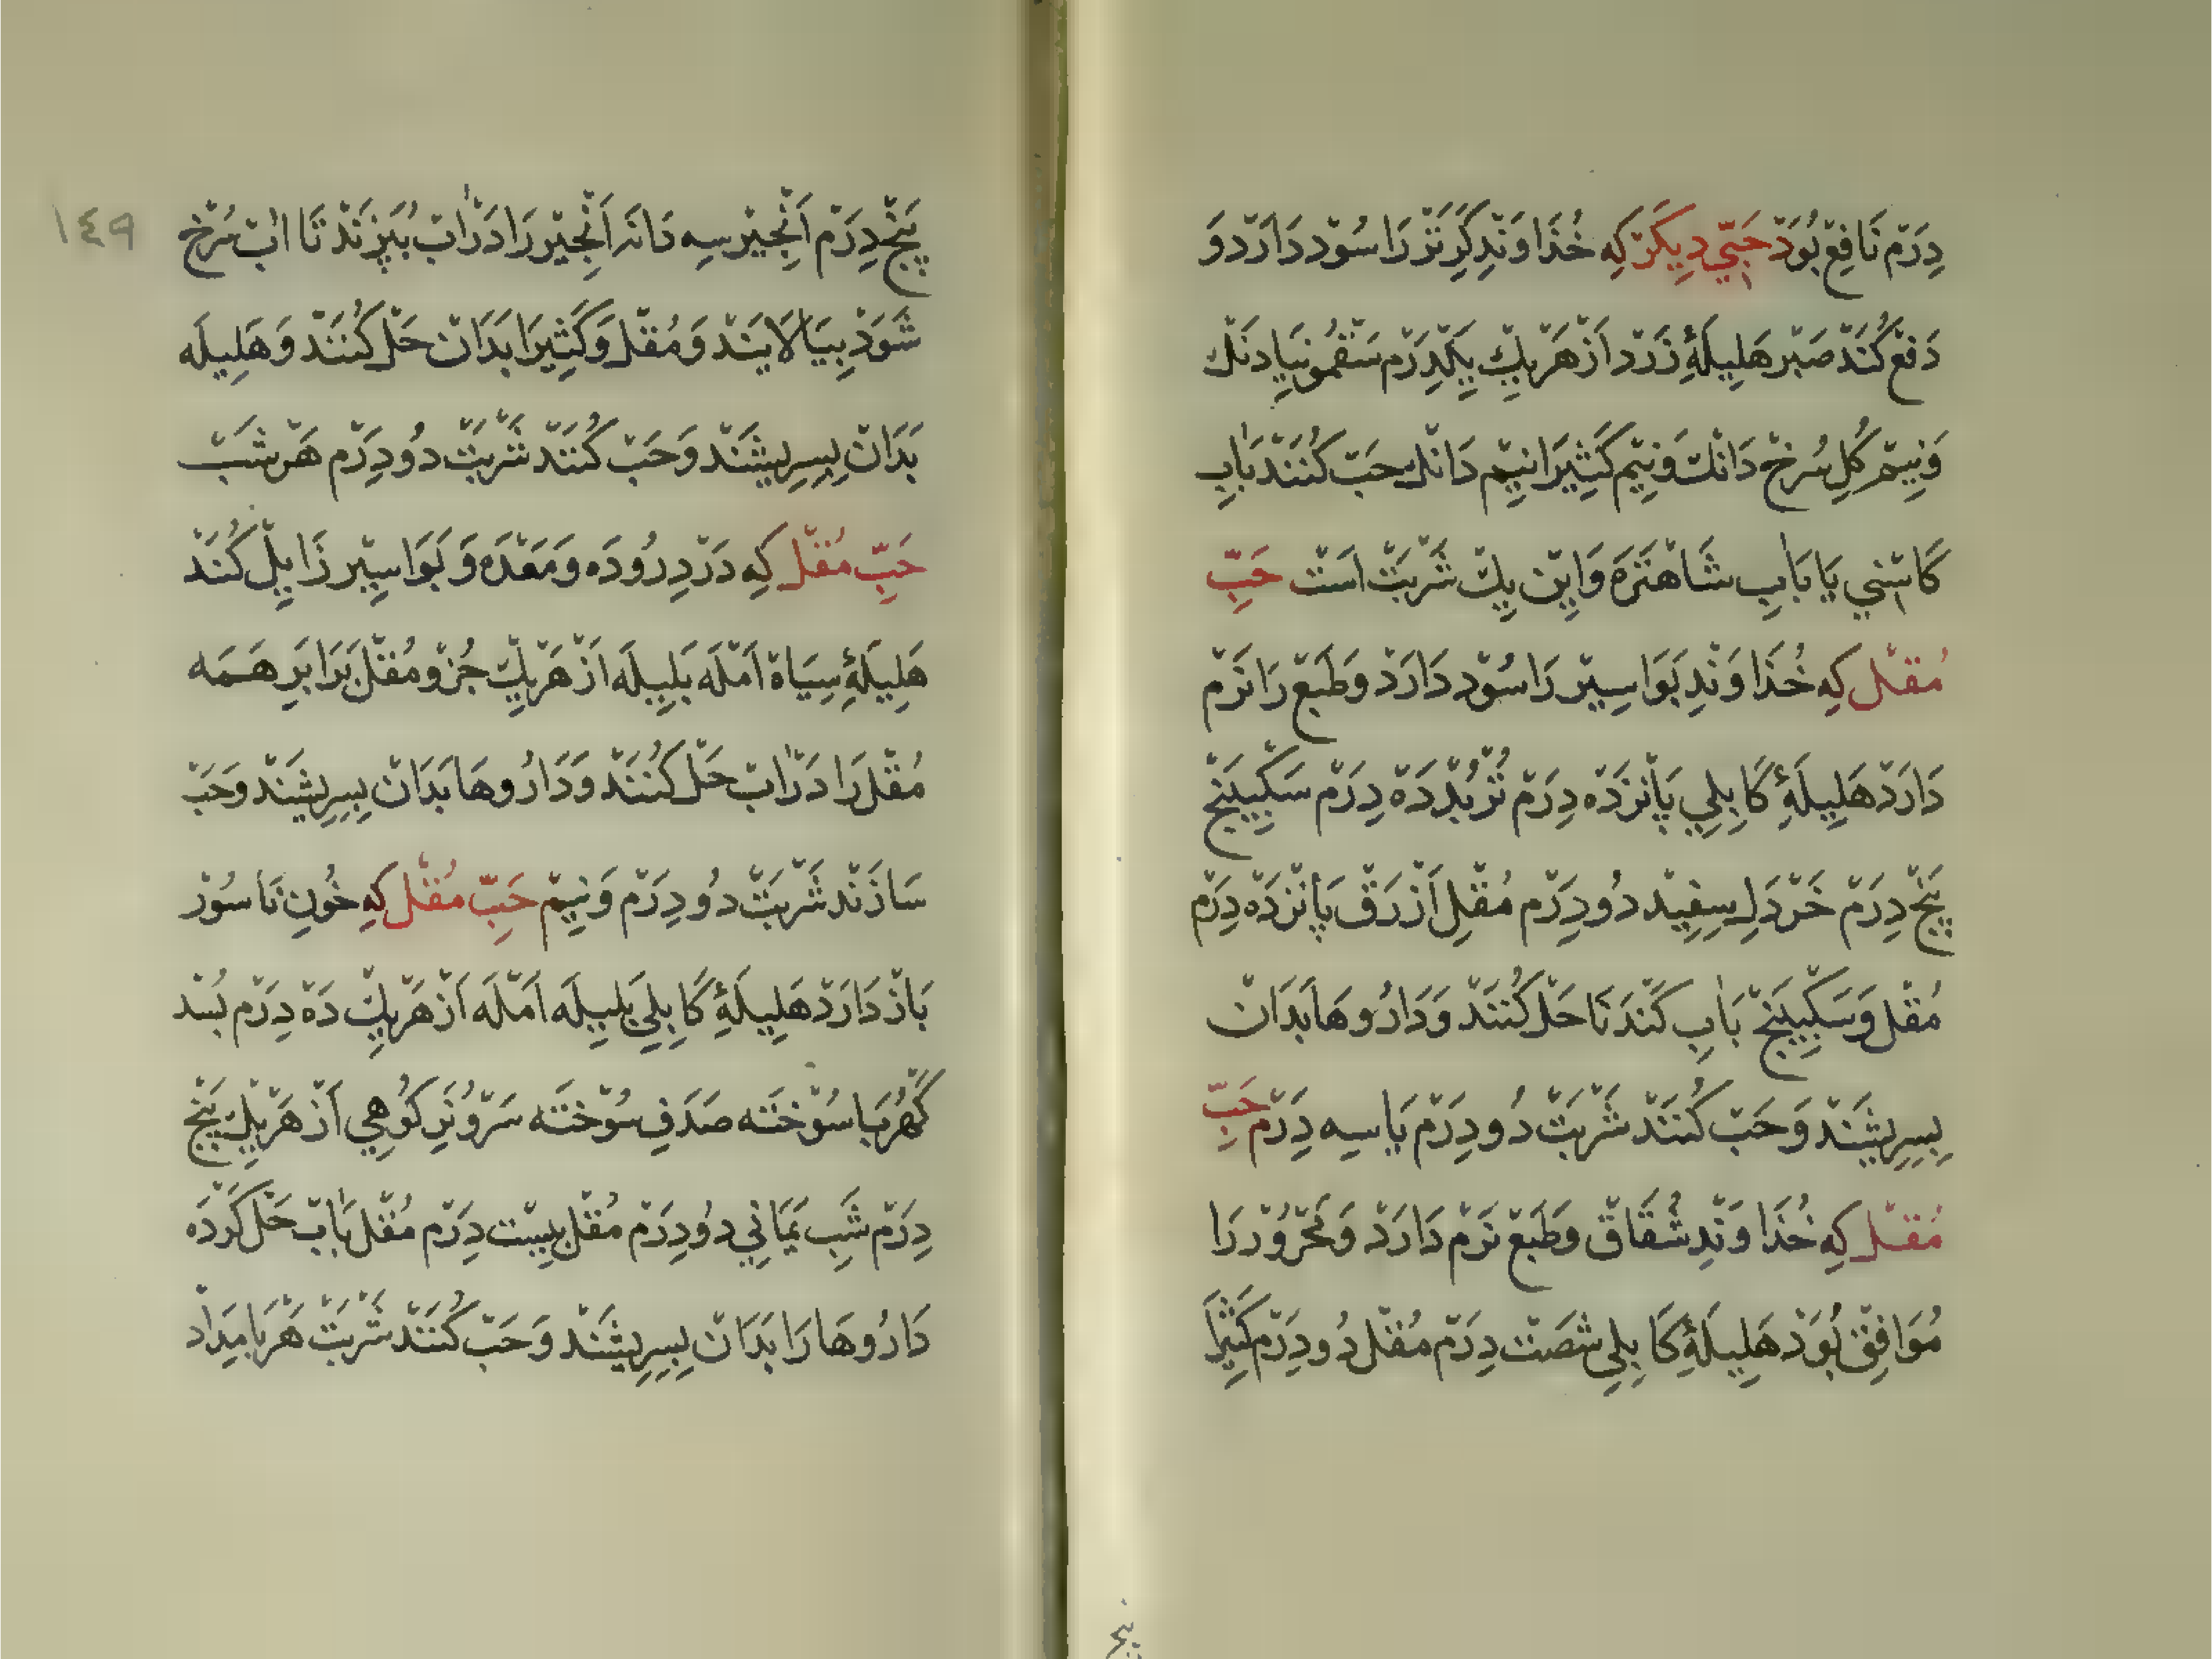 دِرَم نَافِع بُوَد حَبّي دِيكَر كِه خُذَاوَندِ كَر تَر رَا سُود دَارَد وَ
دَفع كُنَد صَبر هَلِيلَهٔ زَرد اَز هَر يِك يِكدِرَم سَقمُونيَا دَنك
وَنِيم كُلِ سُرخ دَانك وَنِيم كَثِيرَا نِيم دَانك حَبّ كُنَند بَابِ
كَاسني يَا بَابِ شَاهتَرَه وَاين يِك شَربَت است حَبِّ
مُقل كِه خُذَاوَندِ بَوَاسِير رَا سُود دَارَد وَطَبع رَا نَرم
دَارَد هَلِيلَهٔ كَابِلِي پَانزَدَه دِرَم تُربُد دَه دِرَم سَكبِينَج
پَنج دِرَم خَردَلِ سِفِيد دُو دِرَم مُقلِ اَزرَق پَانزَدَه دِرَم
مُقل وَسَكبِينَج بَابِ كَندَنَا حَل كُنَند وَدَارُوهَا بَدَان
بِسِرِيشَند وَحَبّ كُنَند شَربَت دُو دِرَم يَا سِه دِرَم حَبِّ
مُقل كِه خُذَاوَندِ شُقَاق وَطَبع نَرم دَارَد وَمَحرُور رَا
مُوَافِق بُوَد هَلِيلَهٔ كَابِلِي شَصت دِرَم مُقل دُو دِرَم كَثِيرَا
پنج
١٤٩
پَنج دِرَم اَنجِير سِه دَانَه اَنجِير رَا دَر اب بُپَزَند تَا اب سُرخ
شَوَد بِيَالَايَند وَمُقل وَكَثِيرَا بَدَان حَل كُنَند وَهَلِيلَه
بَدَان بِسِرِيشَند وَحَبّ كُنَند شَربَت دُو دِرَم هَر شَب
حَبِّ مُقل كِه دَردِ رُودَه وَمَعدَه وَبَوَاسِير زَايِل كُنَد
هَلِيلَهٔ سِيَاه اَملَه بَلِيلَه اَز هَر يِك جُزو مُقل بَرَابَرِ هَمَه
مُقل رَا دَر اب حَل كُنَند وَدَارُوهَا بَدَان بِسِرِيشَند وَحَبّ
سَازَند شَربَت دُو دِرَم وَنِيم حَبِّ مُقل كِه خُونِ نَاسُور
بَاز دَارَد هَلِيلَهٔ كَابِلِي بَلِيلَه اَملَه اَز هَر يِك دَه دِرَم بُسَد
كَهرُبَا سُوختَه صَدَفِ سُوختَه سَرُونِ بُزِ كُوهِي اَز هَر يِك پَنج
دِرَم شَبِ يَمَانِي دُو دِرَم مُقل بِيست دِرَم مُقل بَاب حَل كَردَه
دَارُوهَا رَا بَدَان بِسِرِيشَند وَحَبّ كُنَند شَربَت هَر بَامدَاد